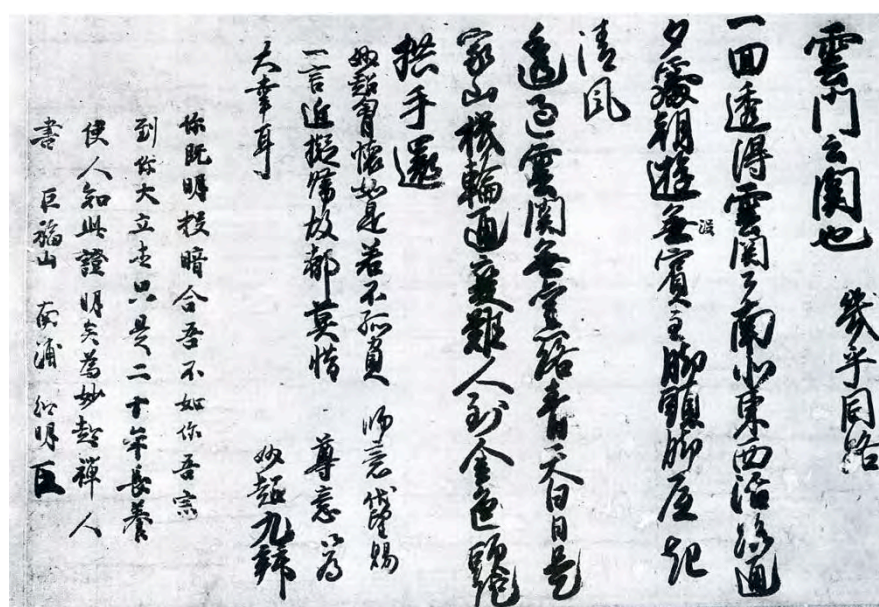 雲門云関也 幾乎同路
一回透得雲関了南北東西活路通
夕處朝遊無没賓主脚頭脚底起
清風
透過雲関無舊路青天白日是
家山機輪通變難人到金色頭陀
拱手還
妙超胷懷如是若不孤負 師意伏望賜
一言近擬帰故都莫惜 尊意以為
大幸耳 妙超九拜
你既明投暗合吾不如你吾宗
到你大立去只是二十年長養
使人知此證明矣為妙超禅人
書 巨福山 南浦紹明